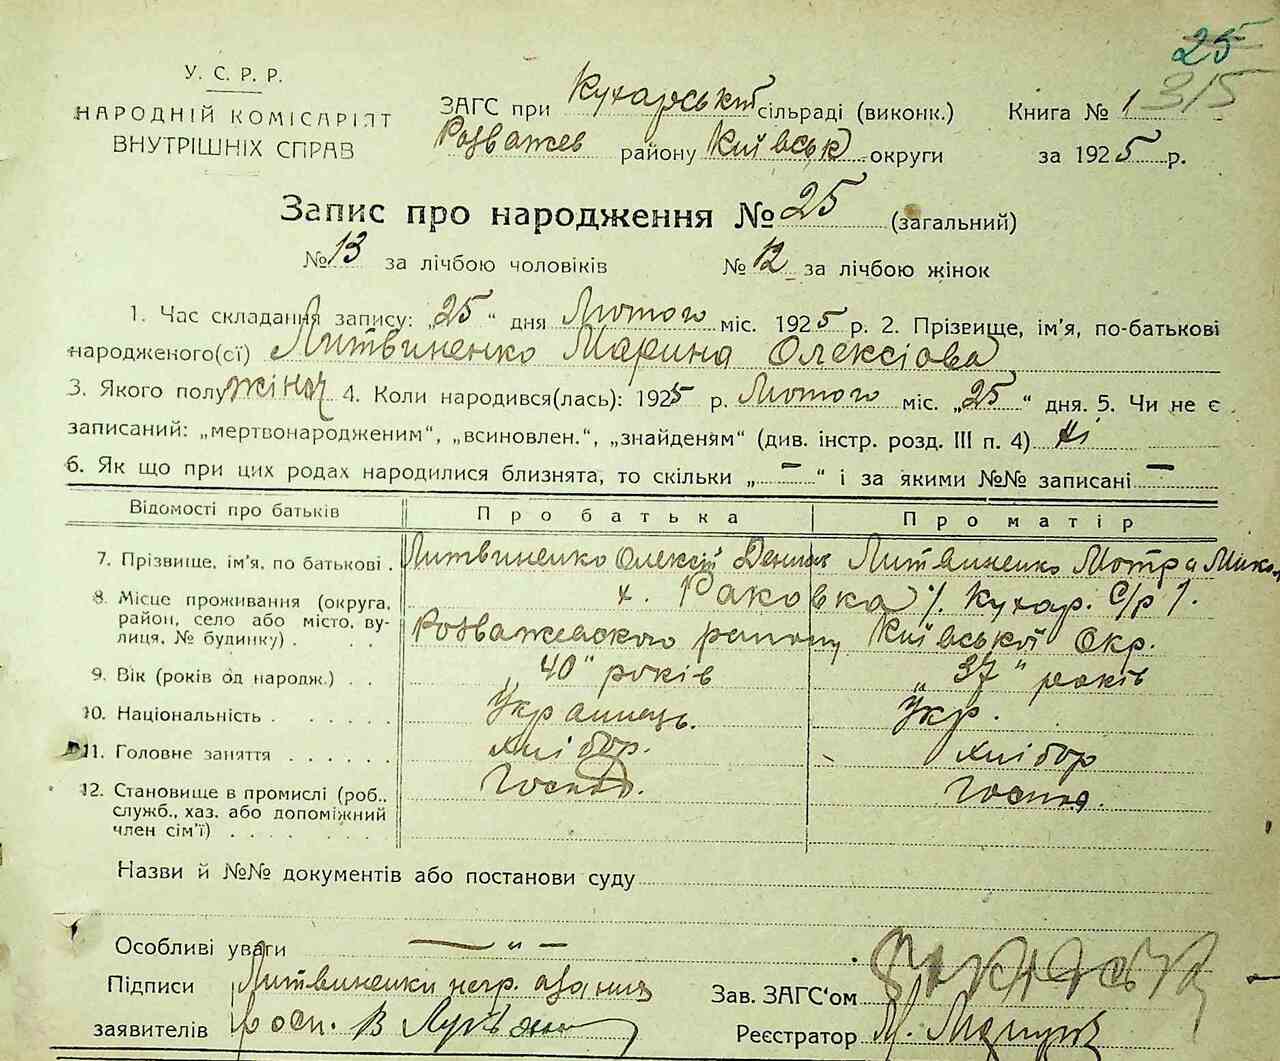 25
315
У. С. Р. Р.
НАРОДНІЙ КОМІСАРІЯТ
ВНУТРІШНІХ СПРАВ
ЗАГС при Кухарській сільраді (виконк.) Книга № 1
Розважев району Київськ округи за 1925 р.
Запис про народження № 25 (загальний)
№ 13 за лічбою чоловіків № 12 за лічбою жінок
1. Час складання запису: „25“ дня Лютого міс. 1925 р. 2. Прізвище, ім'я, по-батькові
народженого(сї) Литвиненко Марина Олексіова
3. Якого полу жіноч 4. Коли народився(лась): 1925 р. Лютого міс. „25“ дня. 5. Чи не є
записаний: „мертвонародженим“, „всиновлен.“, „знайденям“ (див. інстр. розд. III п. 4) ні
6. Як що при цих родах народилися близнята, то скільки „—“ і за якими №№ записані —
Відомості про батьків Про батька Про матір
7. Прізвище, ім'я, по батькові . Литвиненко Олексій Денисов Литвиненко Мотря Мико
8. Місце проживання (округа, район, село або місто, вулиця, № будинку) . . . х. Раковка Кухар. С/р
Розважевского району Київської Окр.
9. Вік (років од народж.) . . „40“ років „37“ років
10. Національність . . . . . . Українець. Укр.
11. Головне заняття . . . . . . хлібор. хлібор
12. Становище в промислі (роб., служб., хаз. або допоміжний член сім'ї) . . . . Господ. Господ.
Назви й №№ документів або постанови суду
Особливі уваги — „ —
Підписи Литвиненки негр. Зав. ЗАГС'ом
заявителів росп. В Реєстратор М.